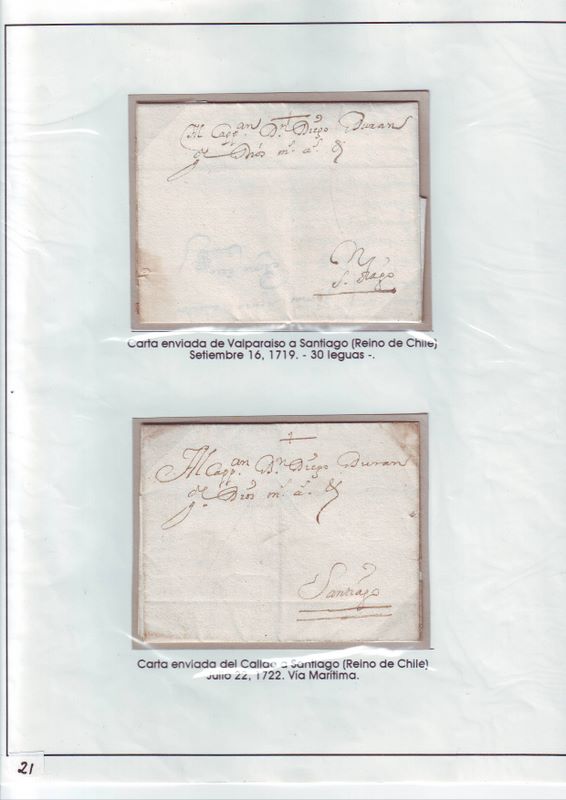 Al Capp.an D.n Diego Duran
g.e Dios m.s a.s &
S. tiago
Carta enviada de Valparaiso a Santiago (Reino de Chile)
Setiembre 16, 1719. - 30 leguas -.
Al Capp.an D.n Diego Duran
g.e Dios m.s a.s &
Santiago
Carta enviada del Callao a Santiago (Reino de Chile)
Julio 22, 1722. Vía Marítima.
21